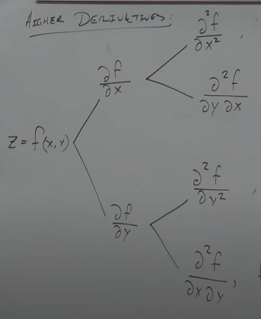 HIGHER DERIVATIVES:
∂²f/∂x² ,
∂f/∂x
∂²f/∂y ∂x
z = f(x, y)
∂²f/∂y² ,
∂f/∂y
∂²f/∂x ∂y ,